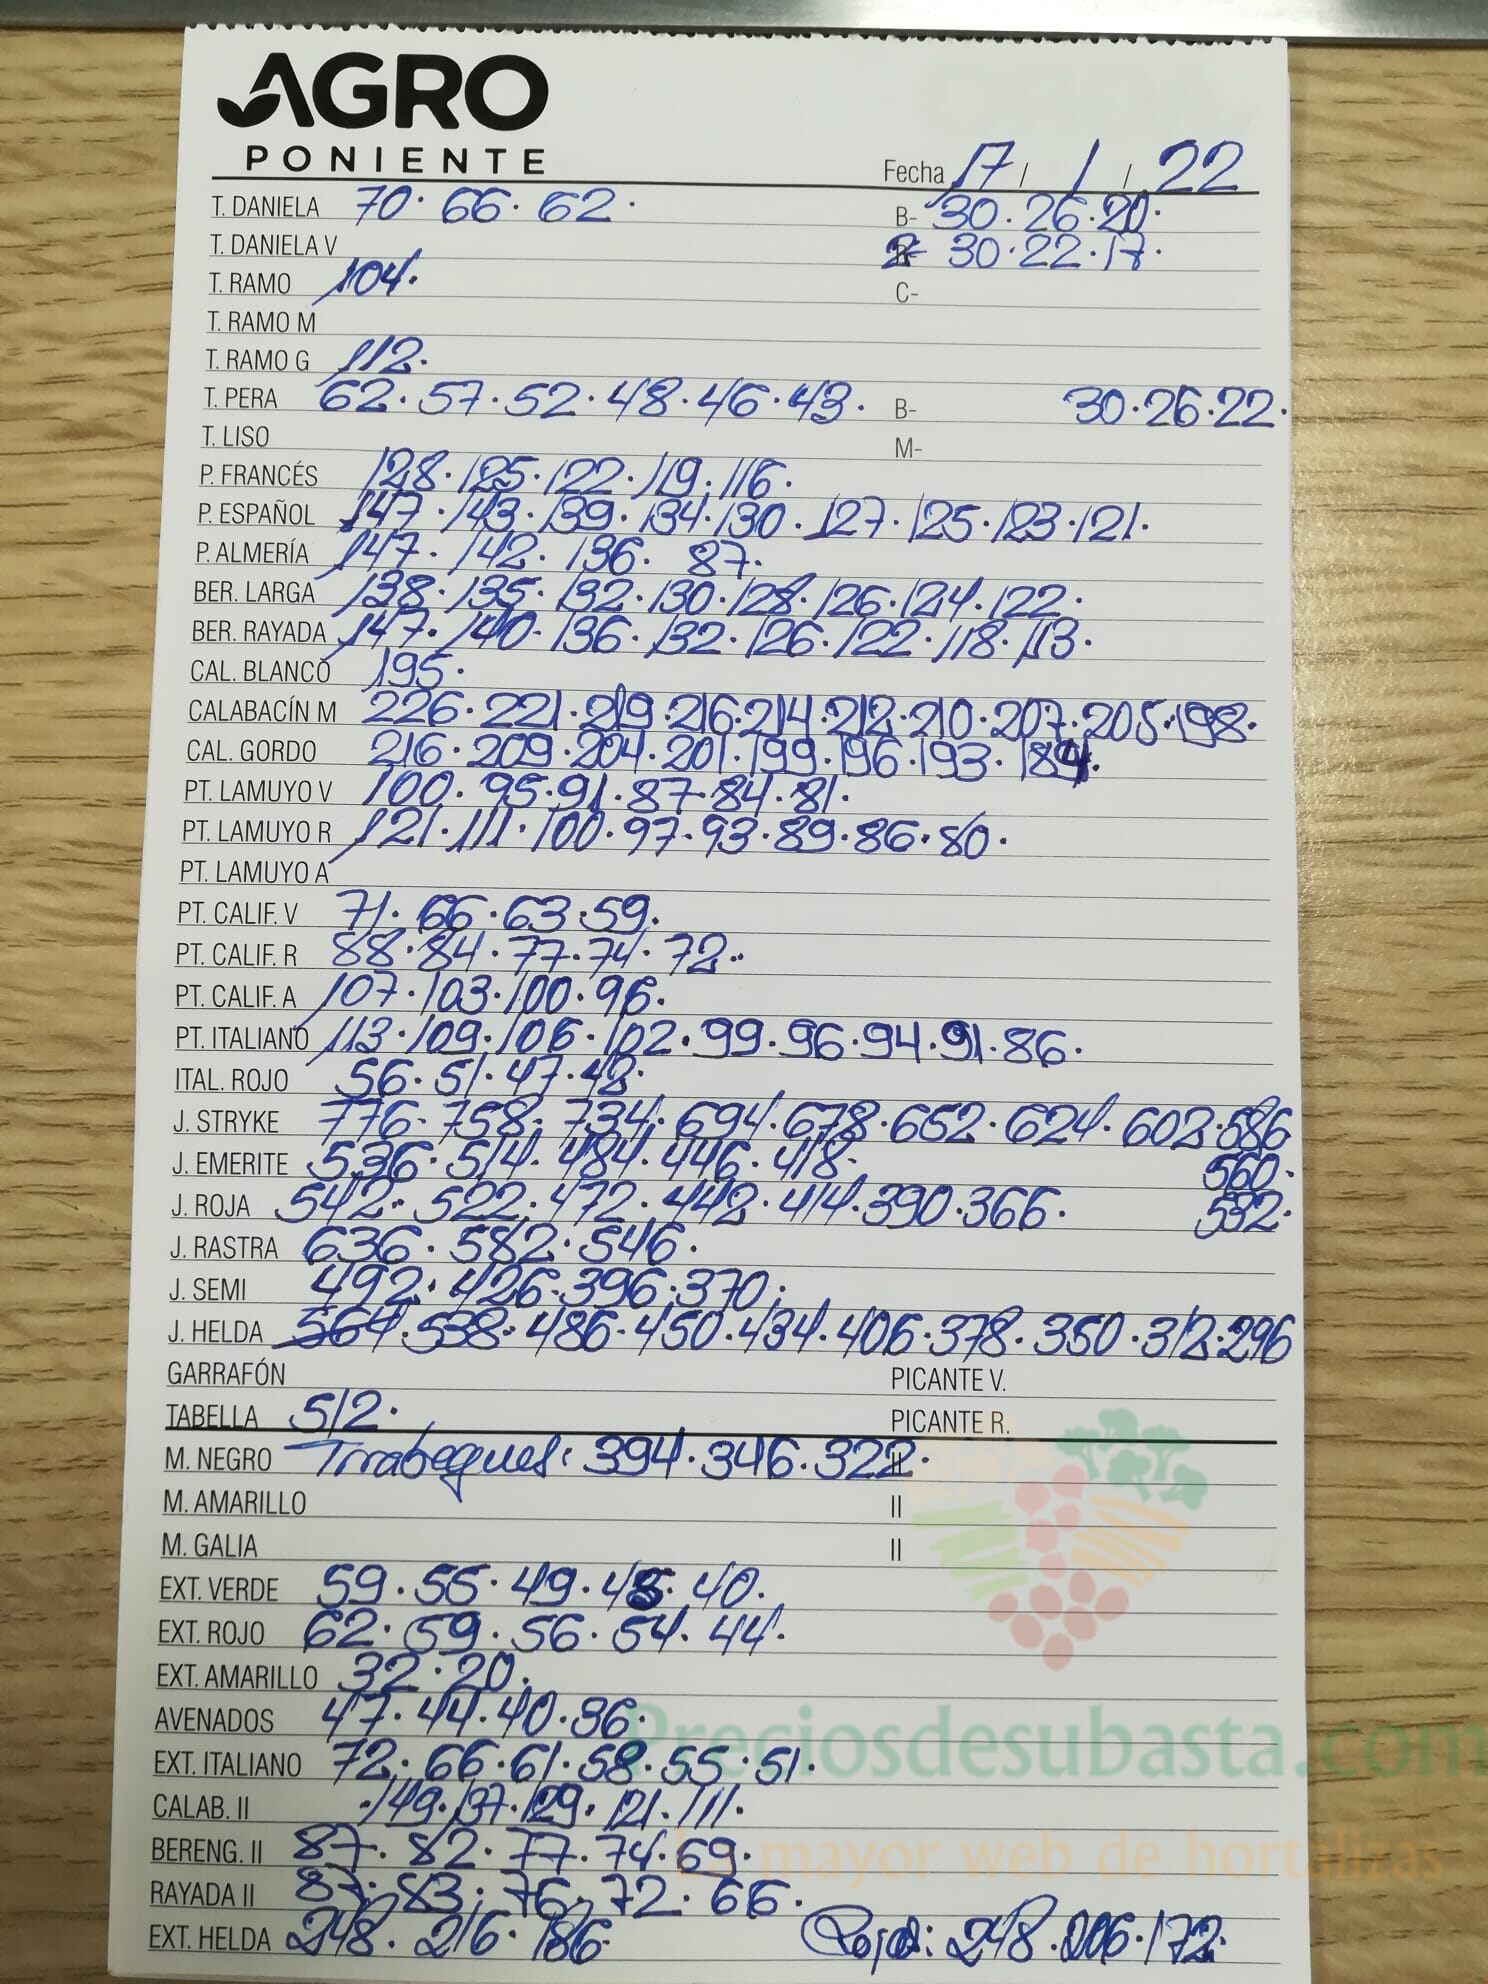 AGRO
PONIENTE
Fecha 17 / 1 / 22
T. DANIELA 70· 66· 62· B- 30·26·20·
T. DANIELA V 2- 30·22·17·
T. RAMO 104· C-
T. RAMO M
T. RAMO G 112·
T. PERA 62·57·52·48·46·43· B- 30·26·22·
T. LISO M-
P. FRANCÉS 128·125·122·119·116·
P. ESPAÑOL 147·143·139·134·130·127·125·123·121·
P. ALMERÍA 147·142·136· 87·
BER. LARGA 138·135·132·130·128·126·124·122·
BER. RAYADA 147·140·136·132·126·122·118·113·
CAL. BLANCO 195·
CALABACÍN M 226·221·219·216·214·212·210·207·205·198·
CAL. GORDO 216·209·204·201·199·196·193·189·
PT. LAMUYO V 100·95·91·87·84·81·
PT. LAMUYO R 121·111·100·97·93·89·86·80·
PT. LAMUYO A
PT. CALIF. V 71·66·63·59·
PT. CALIF. R 88·84·77·74·72··
PT. CALIF. A 107·103·100·96·
PT. ITALIANO 113·109·106·102·99·96·94·91·86·
ITAL. ROJO 56·51·47·42·
J. STRYKE 776·758·734·694·678·652·624·602·586
J. EMERITE 536·514·484·446·418· 560·
J. ROJA 542·522·472·442·414·390·366· 532·
J. RASTRA 636·582·546·
J. SEMI 492·426·396·370·
J. HELDA 564·538·486·450·434·406·378·350·312·296
GARRAFÓN PICANTE V.
TABELLA 512· PICANTE R.
M. NEGRO Tirabeques: 394·346·322· II
M. AMARILLO II
M. GALIA II
EXT. VERDE 59·55·49·45·40·
EXT. ROJO 62·59·56·54·44·
EXT. AMARILLO 32·20·
AVENADOS 47·44·40·36·
Preciosdesubasta.com
EXT. ITALIANO 72·66·61·58·55·51·
CALAB. II ·149·137·129·121·111·
BERENG. II 87·82·77·74·69·
La mayor web de hortalizas
RAYADA II 87·83·76·72·66·
EXT. HELDA 248·216·186· Roja: 248·206·172·